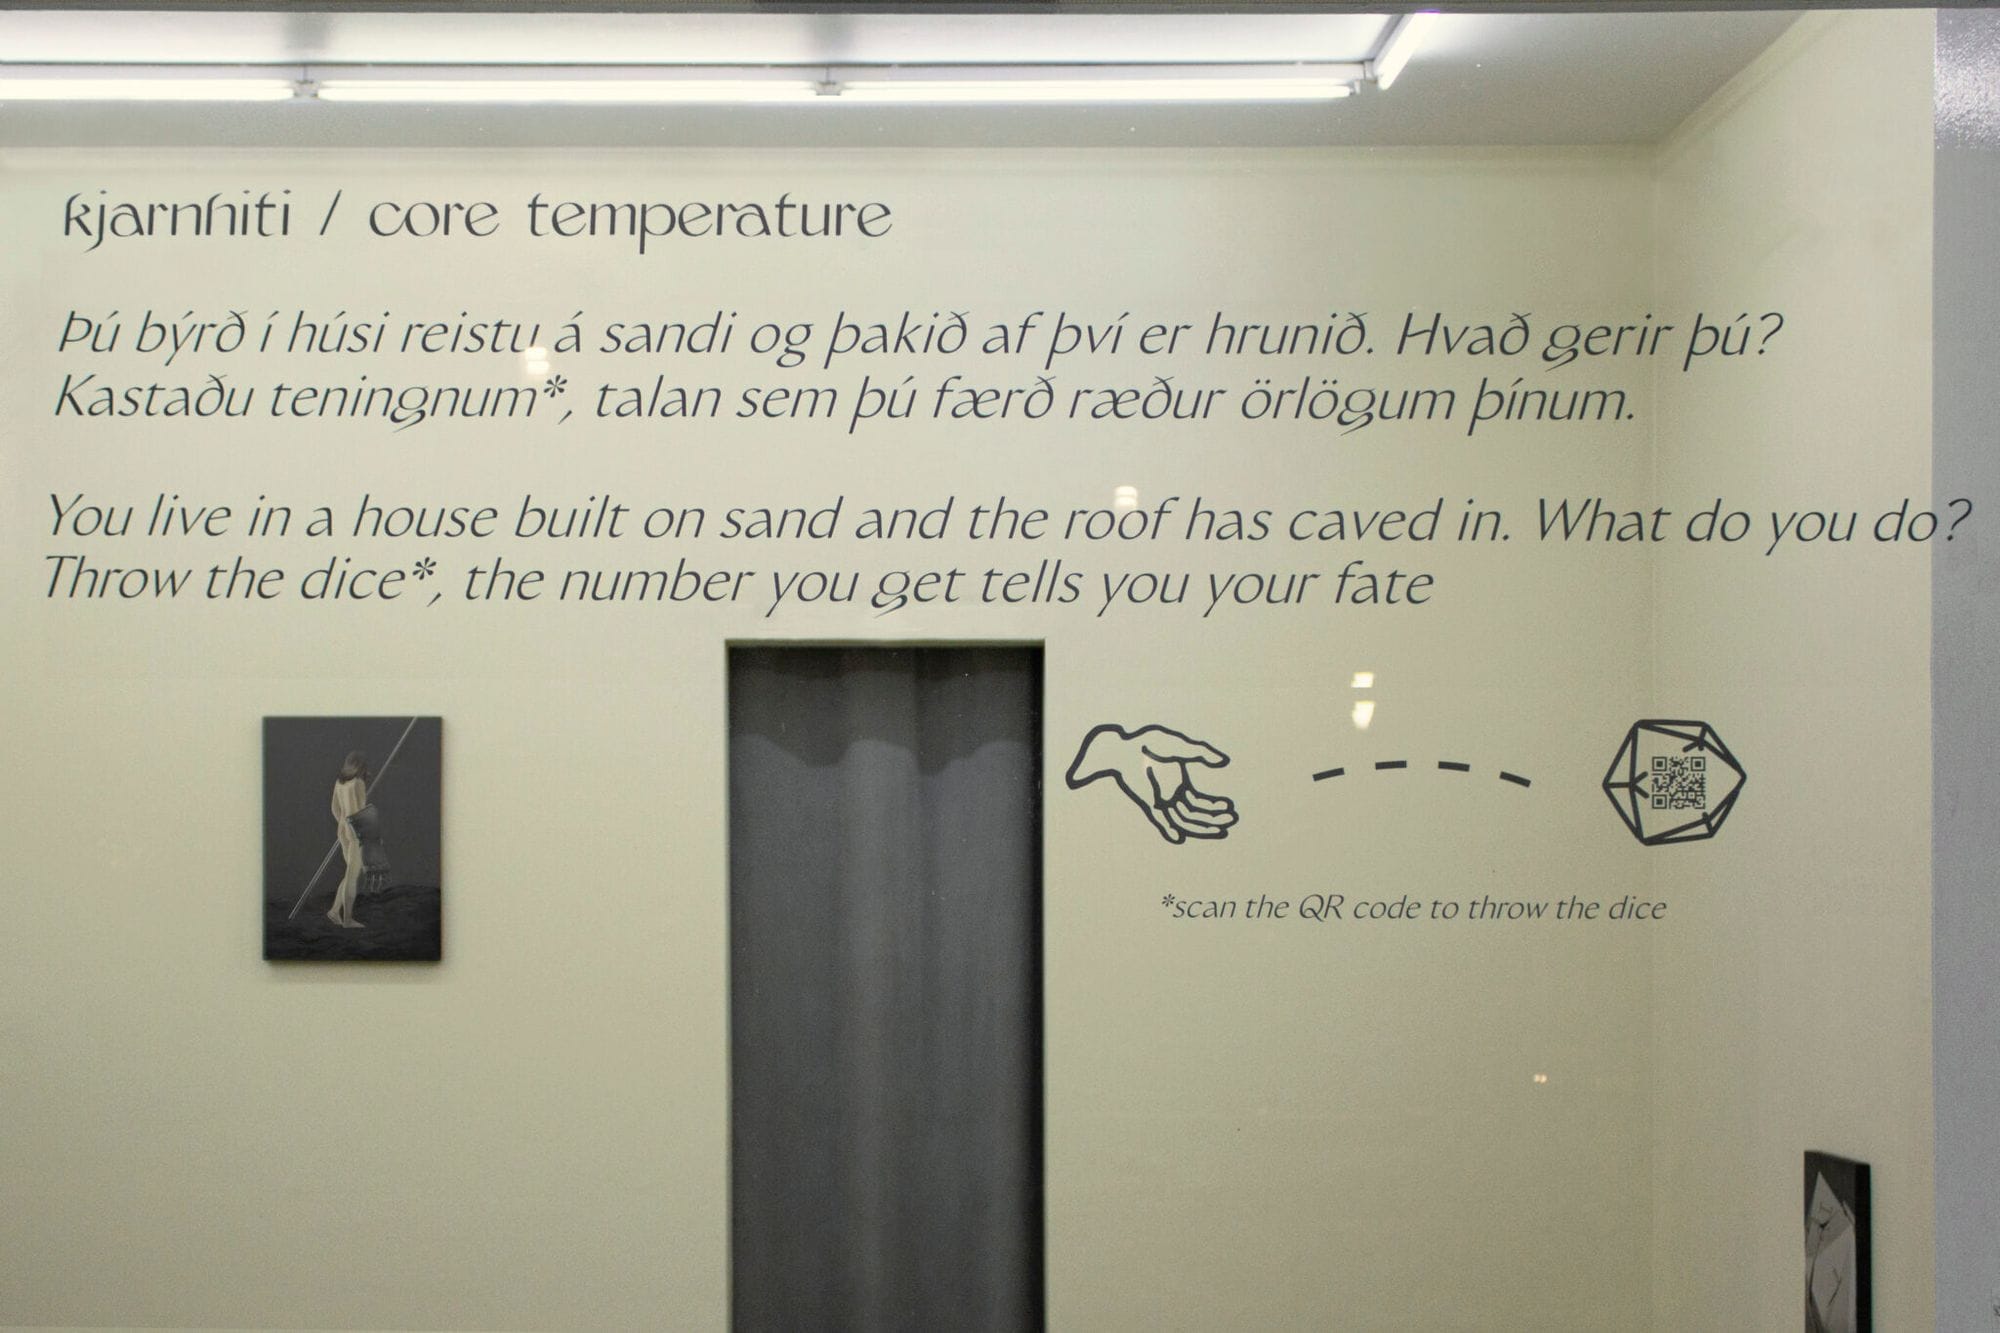 kjarnhiti / core temperature
Þú býrð í húsi reistu á sandi og þakið af því er hrunið. Hvað gerir þú?
Kastaðu teningnum*, talan sem þú færð ræður örlögum þínum.
You live in a house built on sand and the roof has caved in. What do you do?
Throw the dice*, the number you get tells you your fate
*scan the QR code to throw the dice